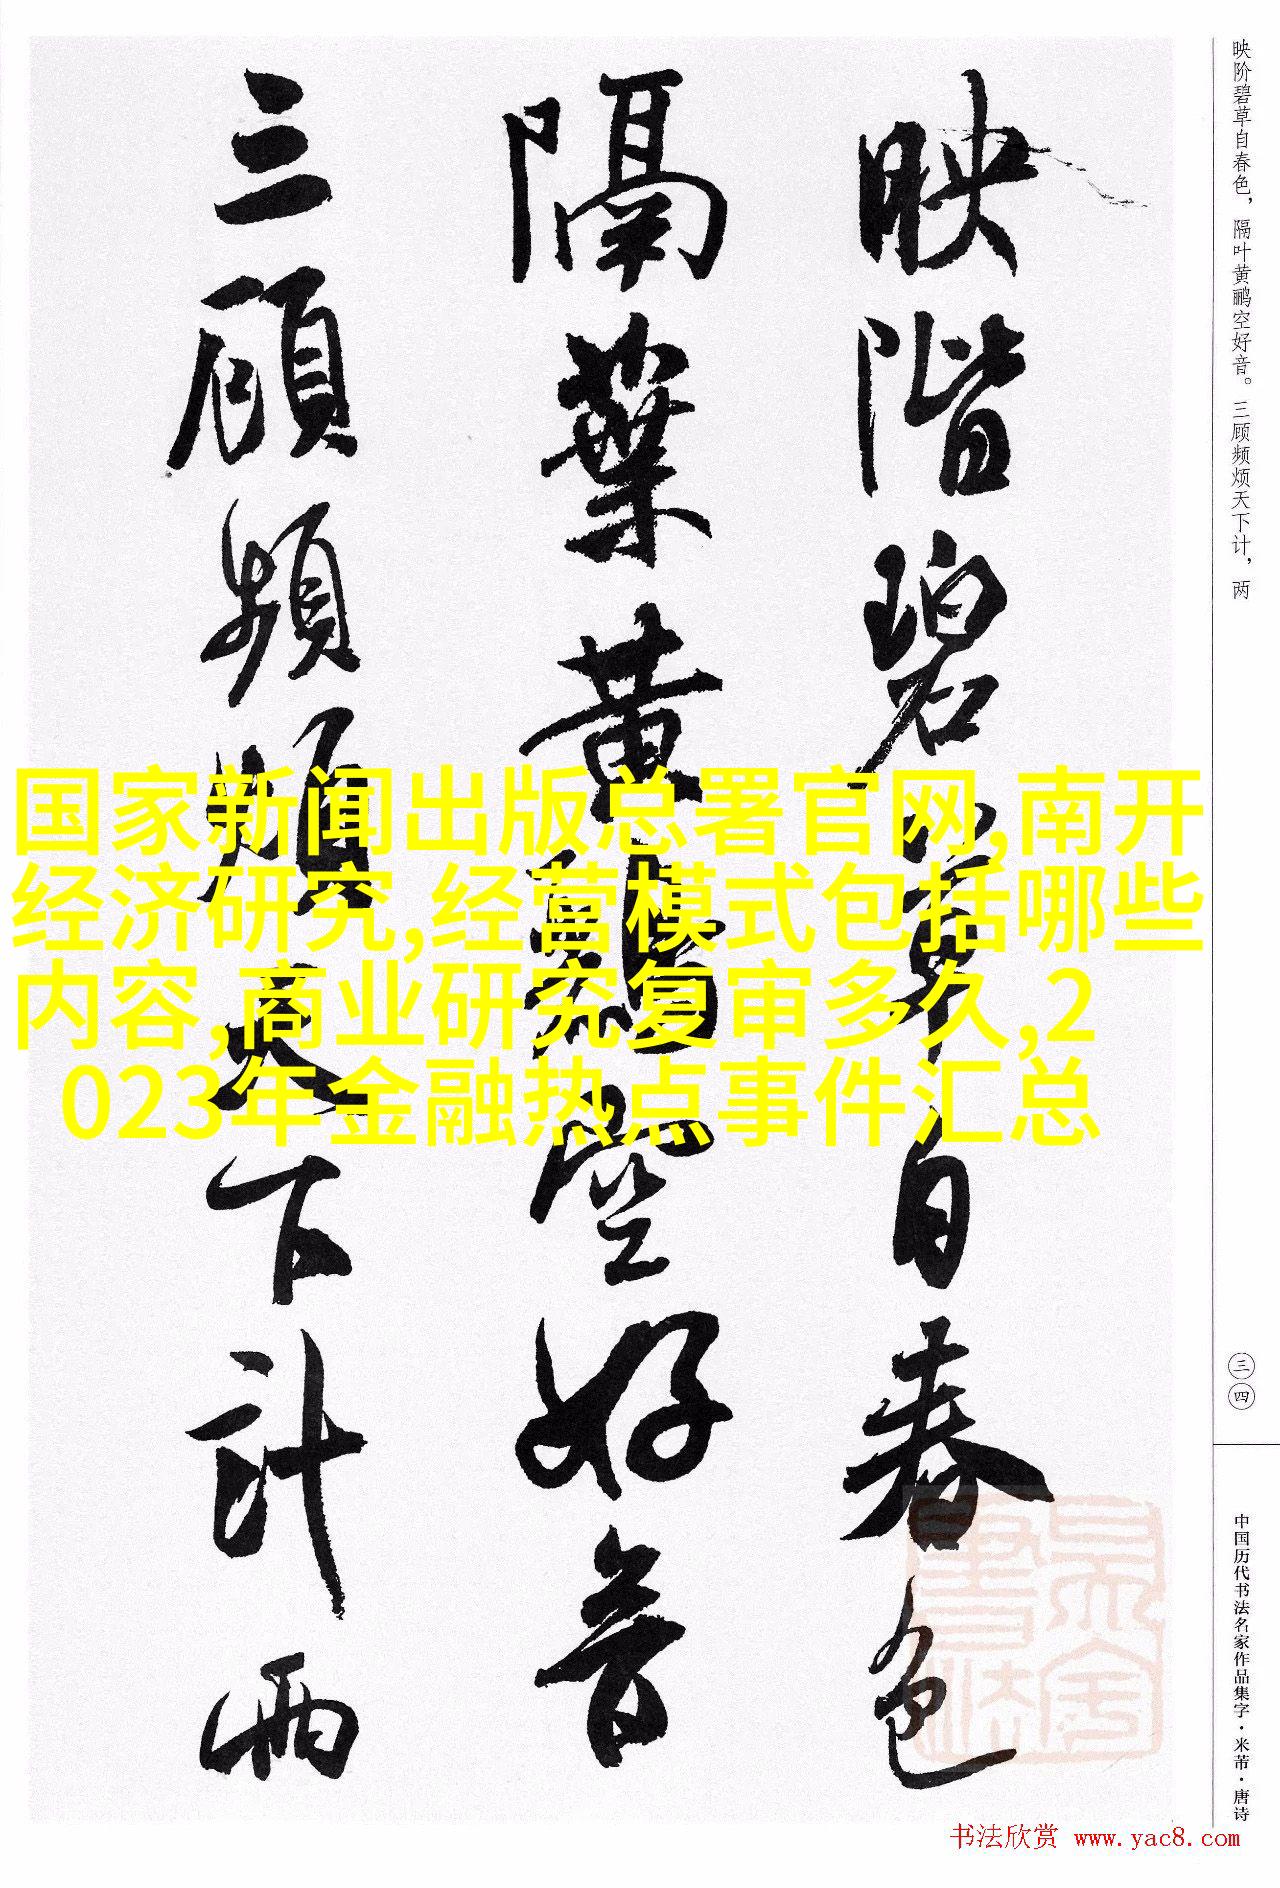 映阶碧草自春色，隔叶黄鹂空好音。三顾频烦天下计，两
映階碧草自春色
隔葉黄鸝空好音
三顧頻煩天下計兩
国家新闻出版总署官网,南开
经济研究,经营模式包括哪些
内容,商业研究复审多久,2
023年金融热点事件汇总
三四
中国历代书法名家作品集字·米芾·唐诗
书法欣赏 www.yac8.com